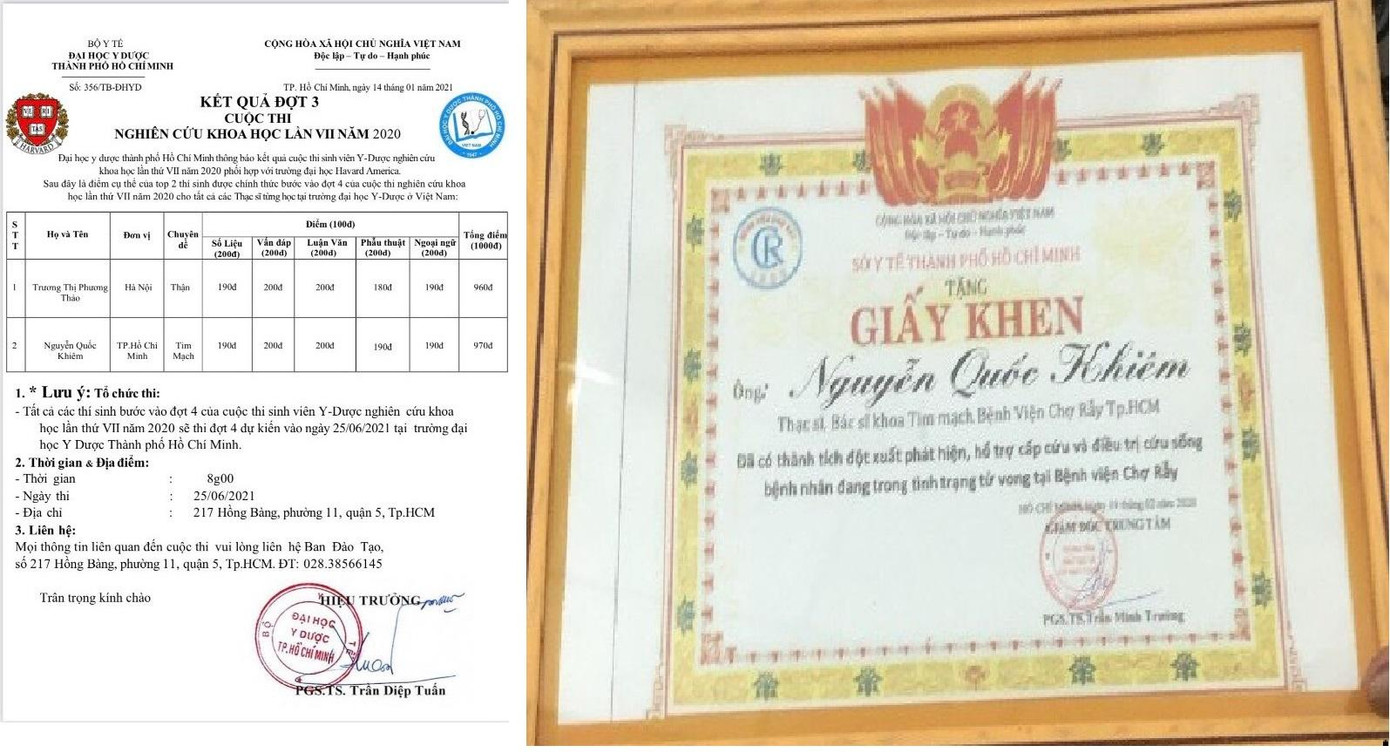 BỘ Y TẾ
ĐẠI HỌC Y DƯỢC
THÀNH PHỐ HỒ CHÍ MINH
Số: 356/TB-ĐHYD
CỘNG HÒA XÃ HỘI CHỦ NGHĨA VIỆT NAM
Độc lập – Tự do – Hạnh phúc
TP. Hồ Chí Minh, ngày 14 tháng 01 năm 2021
VE RI
TAS
HARVARD
KẾT QUẢ ĐỢT 3
CUỘC THI
NGHIÊN CỨU KHOA HỌC LẦN VII NĂM 2020
ĐẠI HỌC Y DƯỢC THÀNH PHỐ HỒ CHÍ MINH
VIET NAM
1947
Đại học y dược thành phố Hồ Chí Minh thông báo kết quả cuộc thi sinh viên Y-Dược nghiên cứu
khoa học lần thứ VII năm 2020 phối hợp với trường đại học Havard America.
Sau đây là điểm cụ thể của top 2 thí sinh được chính thức bước vào đợt 4 của cuộc thi nghiên cứu khoa
học lần thứ VII năm 2020 cho tất cả các Thạc sĩ từng học tại trường đại học Y-Dược ở Việt Nam:
S T T
Họ và Tên
Đơn vị
Chuyên đề
Điểm (100đ)
Số Liệu (200đ)
Vấn đáp (200đ)
Luận Văn (200đ)
Phẫu thuật (200đ)
Ngoại ngữ (200đ)
Tổng điểm (1000đ)
1 Trương Thị Phương Thảo Hà Nội Thận 190đ 200đ 200đ 180đ 190đ 960đ
2 Nguyễn Quốc Khiêm TP.Hồ Chí Minh Tim Mạch 190đ 200đ 200đ 190đ 190đ 970đ
1. * Lưu ý: Tổ chức thi:
- Tất cả các thí sinh bước vào đợt 4 của cuộc thi sinh viên Y-Dược nghiên cứu khoa
học lần thứ VII năm 2020 sẽ thi đợt 4 dự kiến vào ngày 25/06/2021 tại trường đại
học Y Dược Thành phố Hồ Chí Minh.
2. Thời gian & Địa điểm:
- Thời gian : 8g00
- Ngày thi : 25/06/2021
- Địa chỉ : 217 Hồng Bàng, phường 11, quận 5, Tp.HCM
3. Liên hệ:
Mọi thông tin liên quan đến cuộc thi vui lòng liên hệ Ban Đào Tạo,
số 217 Hồng Bàng, phường 11, quận 5, Tp.HCM. ĐT: 028.38566145
Trân trọng kính chào
HIỆU TRƯỞNG
BỘ Y TẾ
ĐẠI HỌC
Y DƯỢC
TP.HỒ CHÍ MINH
PGS.TS. Trần Diệp Tuấn
CỘNG HÒA XÃ HỘI CHỦ NGHĨA VIỆT NAM
Độc lập – Tự do – Hạnh phúc
SỞ Y TẾ THÀNH PHỐ HỒ CHÍ MINH
TẶNG
GIẤY KHEN
Ông: Nguyễn Quốc Khiêm
Thạc sĩ, Bác sĩ khoa Tim mạch, Bệnh Viện Chợ Rẫy Tp.HCM
Đã có thành tích đột xuất phát hiện, hổ trợ cấp cứu và điều trị cứu sống
bệnh nhân đang trong tình trạng tử vong tại Bệnh viện Chợ Rẫy
năm 2020
GIÁM ĐỐC TRUNG TÂM
PGS.TS.Trần Minh Trường